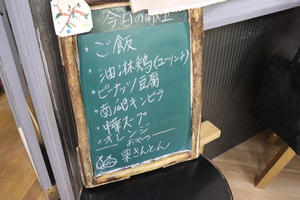 今日の献立
・ご飯
・油淋鶏(ユーリンチ)
・ピーナッツ豆腐
・南瓜キンピラ
・中華スープ
・オレンジ
おやつ
栗きんとん